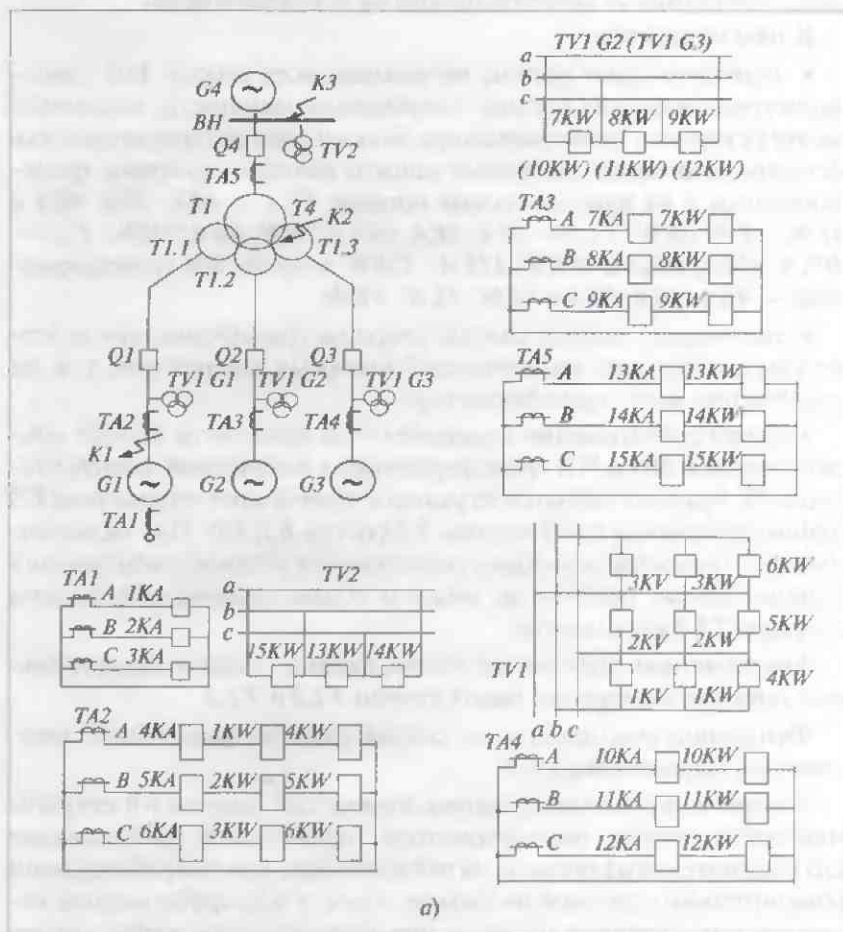 G4
K3
BH
Q4
TV2
TA5
T1
T4
K2
T1.1
T1.3
T1.2
Q1
Q2
Q3
TV1 G1
TV1 G2
TV1 G3
TA2
TA3
TA4
K1
G1
G2
G3
TA1
TV1 G2 (TV1 G3)
a
b
c
7KW 8KW 9KW
(10KW) (11KW) (12KW)
TA3
A 7KA 7KW
B 8KA 8KW
C 9KA 9KW
TA5
A 13KA 13KW
B 14KA 14KW
C 15KA 15KW
TA1
A 1KA
B 2KA
C 3KA
TV2
a
b
c
15KW 13KW 14KW
6KW
3KV 3KW
5KW
2KV 2KW
4KW
1KV 1KW
TV1
a b c
TA2
A 4KA 1KW 4KW
B 5KA 2KW 5KW
C 6KA 3KW 6KW
TA4
A 10KA 10KW
B 11KA 11KW
C 12KA 12KW
а)